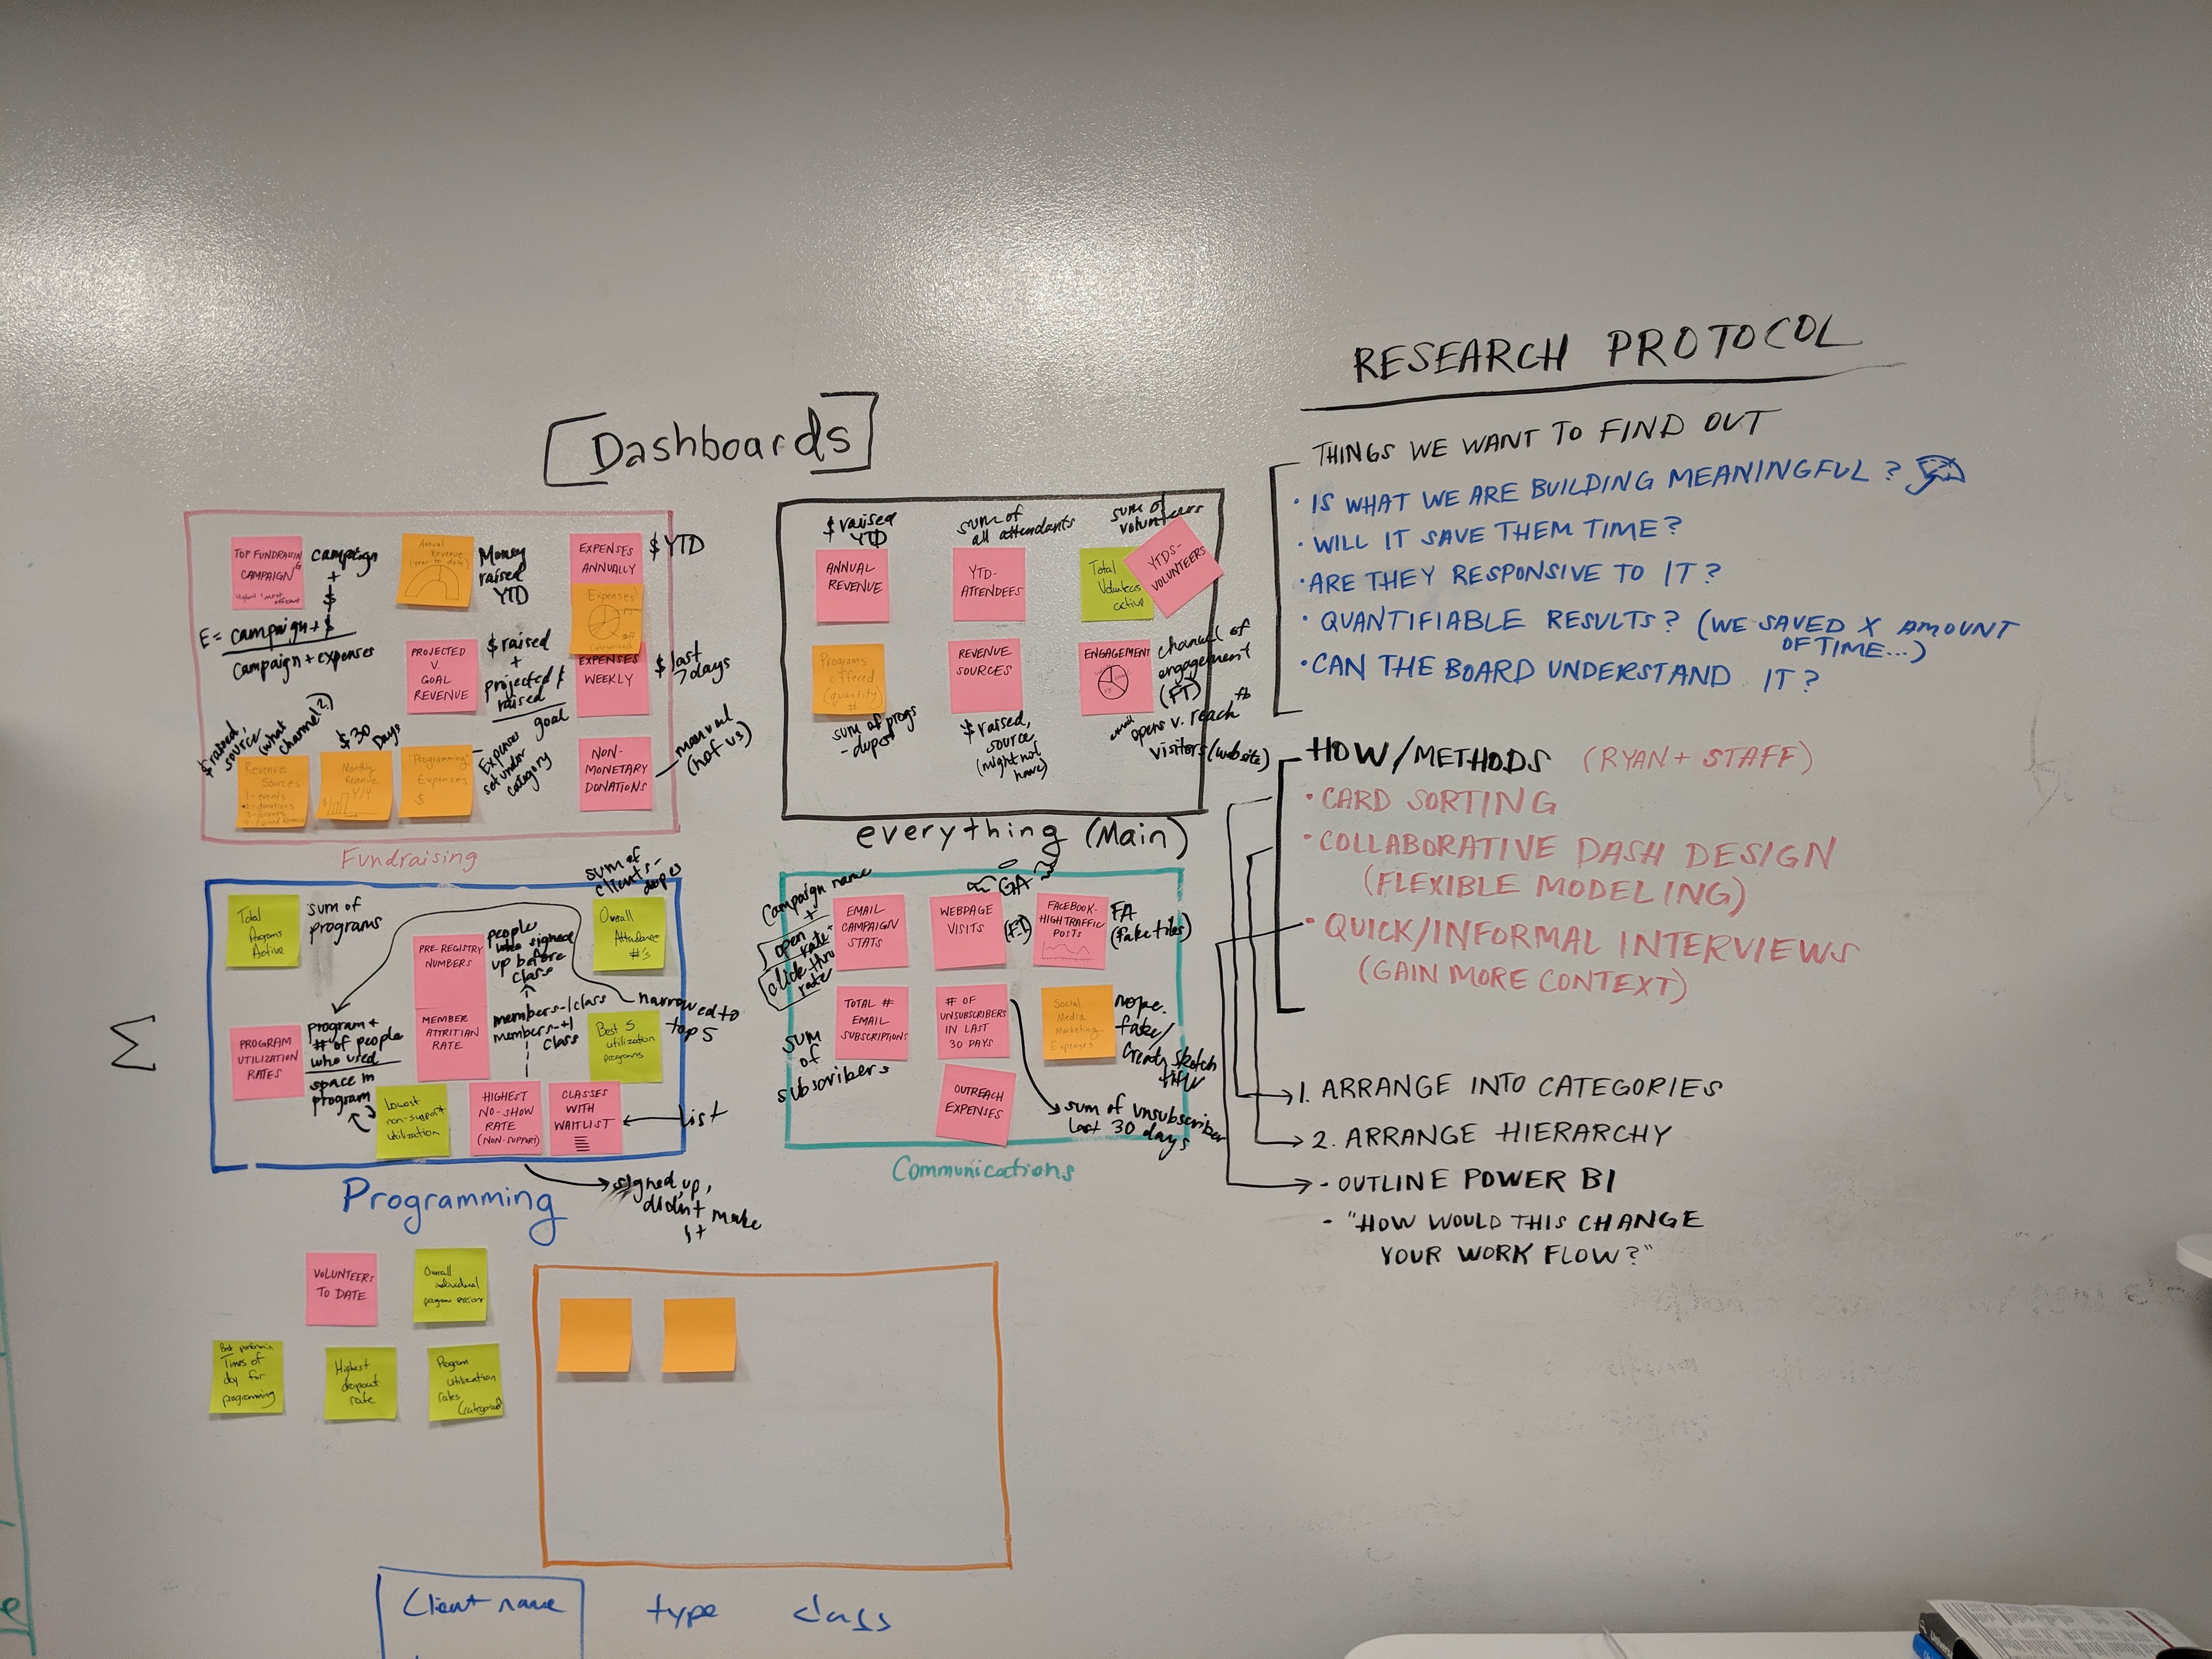 [Dashboards]
TOP FUNDRAISING
CAMPAIGN
Highest + most
efficient
campaign
+
$
E = campaign + $
campaign + expenses
Annual
Revenue
(year to date)
Money
raised
YTD
EXPENSES
ANNUALLY
$ YTD
Expenses
EXPENSES
WEEKLY
$ last
7 days
PROJECTED
V.
GOAL
REVENUE
$ raised
+
projected $
raised
goal
$ raised,
source
(what
channel?)
Revenue
Sources
1 - events
2 - donations
$ 30
Days
Monthly
Revenue
Y/Y
"Programming"
Expenses
$
Expenses
set under
category
NON-
MONETARY
DONATIONS
manual
(not us)
Fundraising
$ raised
YTD
ANNUAL
REVENUE
sum of
all attendants
YTD-
ATTENDEES
sum of
volunteers
Total
Volunteers
active
YTDS-
VOLUNTEERS
Programs
offered
(quantity)
#
sum of progs
- dupes
REVENUE
SOURCES
$ raised,
source
(might not
have)
ENGAGEMENT
channel of
engagement
(FT)
fb
email
opens v. reach
visitors (website)
everything (Main)
Total
Programs
Active
sum of
programs
PRE-REGISTRY
NUMBERS
people
who signed
up before
class
sum of
clients -
dupes
Overall
Attendance
#'s
PROGRAM
UTILIZATION
RATES
program +
# of people
who used
space in
program
MEMBER
ATTRITIAN
RATE
members-1class
members-+1
class
narrowed to
top 5
Best 5
utilization
programs
Lowest
non-support
utilization
HIGHEST
NO-SHOW
RATE
(NON-SUPPORT)
CLASSES
WITH
WAITLIST
list
signed up,
didn't make
it
Programming
Σ
Campaign name
+
open
rate
click thru
rate
EMAIL
CAMPAIGN
STATS
GA
WEBPAGE
VISITS
(FT)
FACEBOOK-
HIGH TRAFFIC
POSTS
FA
(fake tiles)
TOTAL #
EMAIL
SUBSCRIPTIONS
sum
of
subscribers
# OF
UNSUBSCRIBERS
IN LAST
30 DAYS
Social
Media
Marketing
Expenses
nope.
fake/
OUTREACH
EXPENSES
sum of unsubscriber
last 30 days
Communications
VOLUNTEERS
TO DATE
Overall
individual
program
Times of
day for
programming
Highest
dropout
rate
Program
utilization
rates
Client name
type
class
RESEARCH PROTOCOL
THINGS WE WANT TO FIND OUT
• IS WHAT WE ARE BUILDING MEANINGFUL?
• WILL IT SAVE THEM TIME?
• ARE THEY RESPONSIVE TO IT?
• QUANTIFIABLE RESULTS? (WE SAVED X AMOUNT
OF TIME...)
• CAN THE BOARD UNDERSTAND IT?
HOW/METHODS (RYAN + STAFF)
• CARD SORTING
• COLLABORATIVE DASH DESIGN
(FLEXIBLE MODELING)
• QUICK/INFORMAL INTERVIEWS
(GAIN MORE CONTEXT)
1. ARRANGE INTO CATEGORIES
2. ARRANGE HIERARCHY
- OUTLINE POWER BI
- "HOW WOULD THIS CHANGE
YOUR WORK FLOW?"